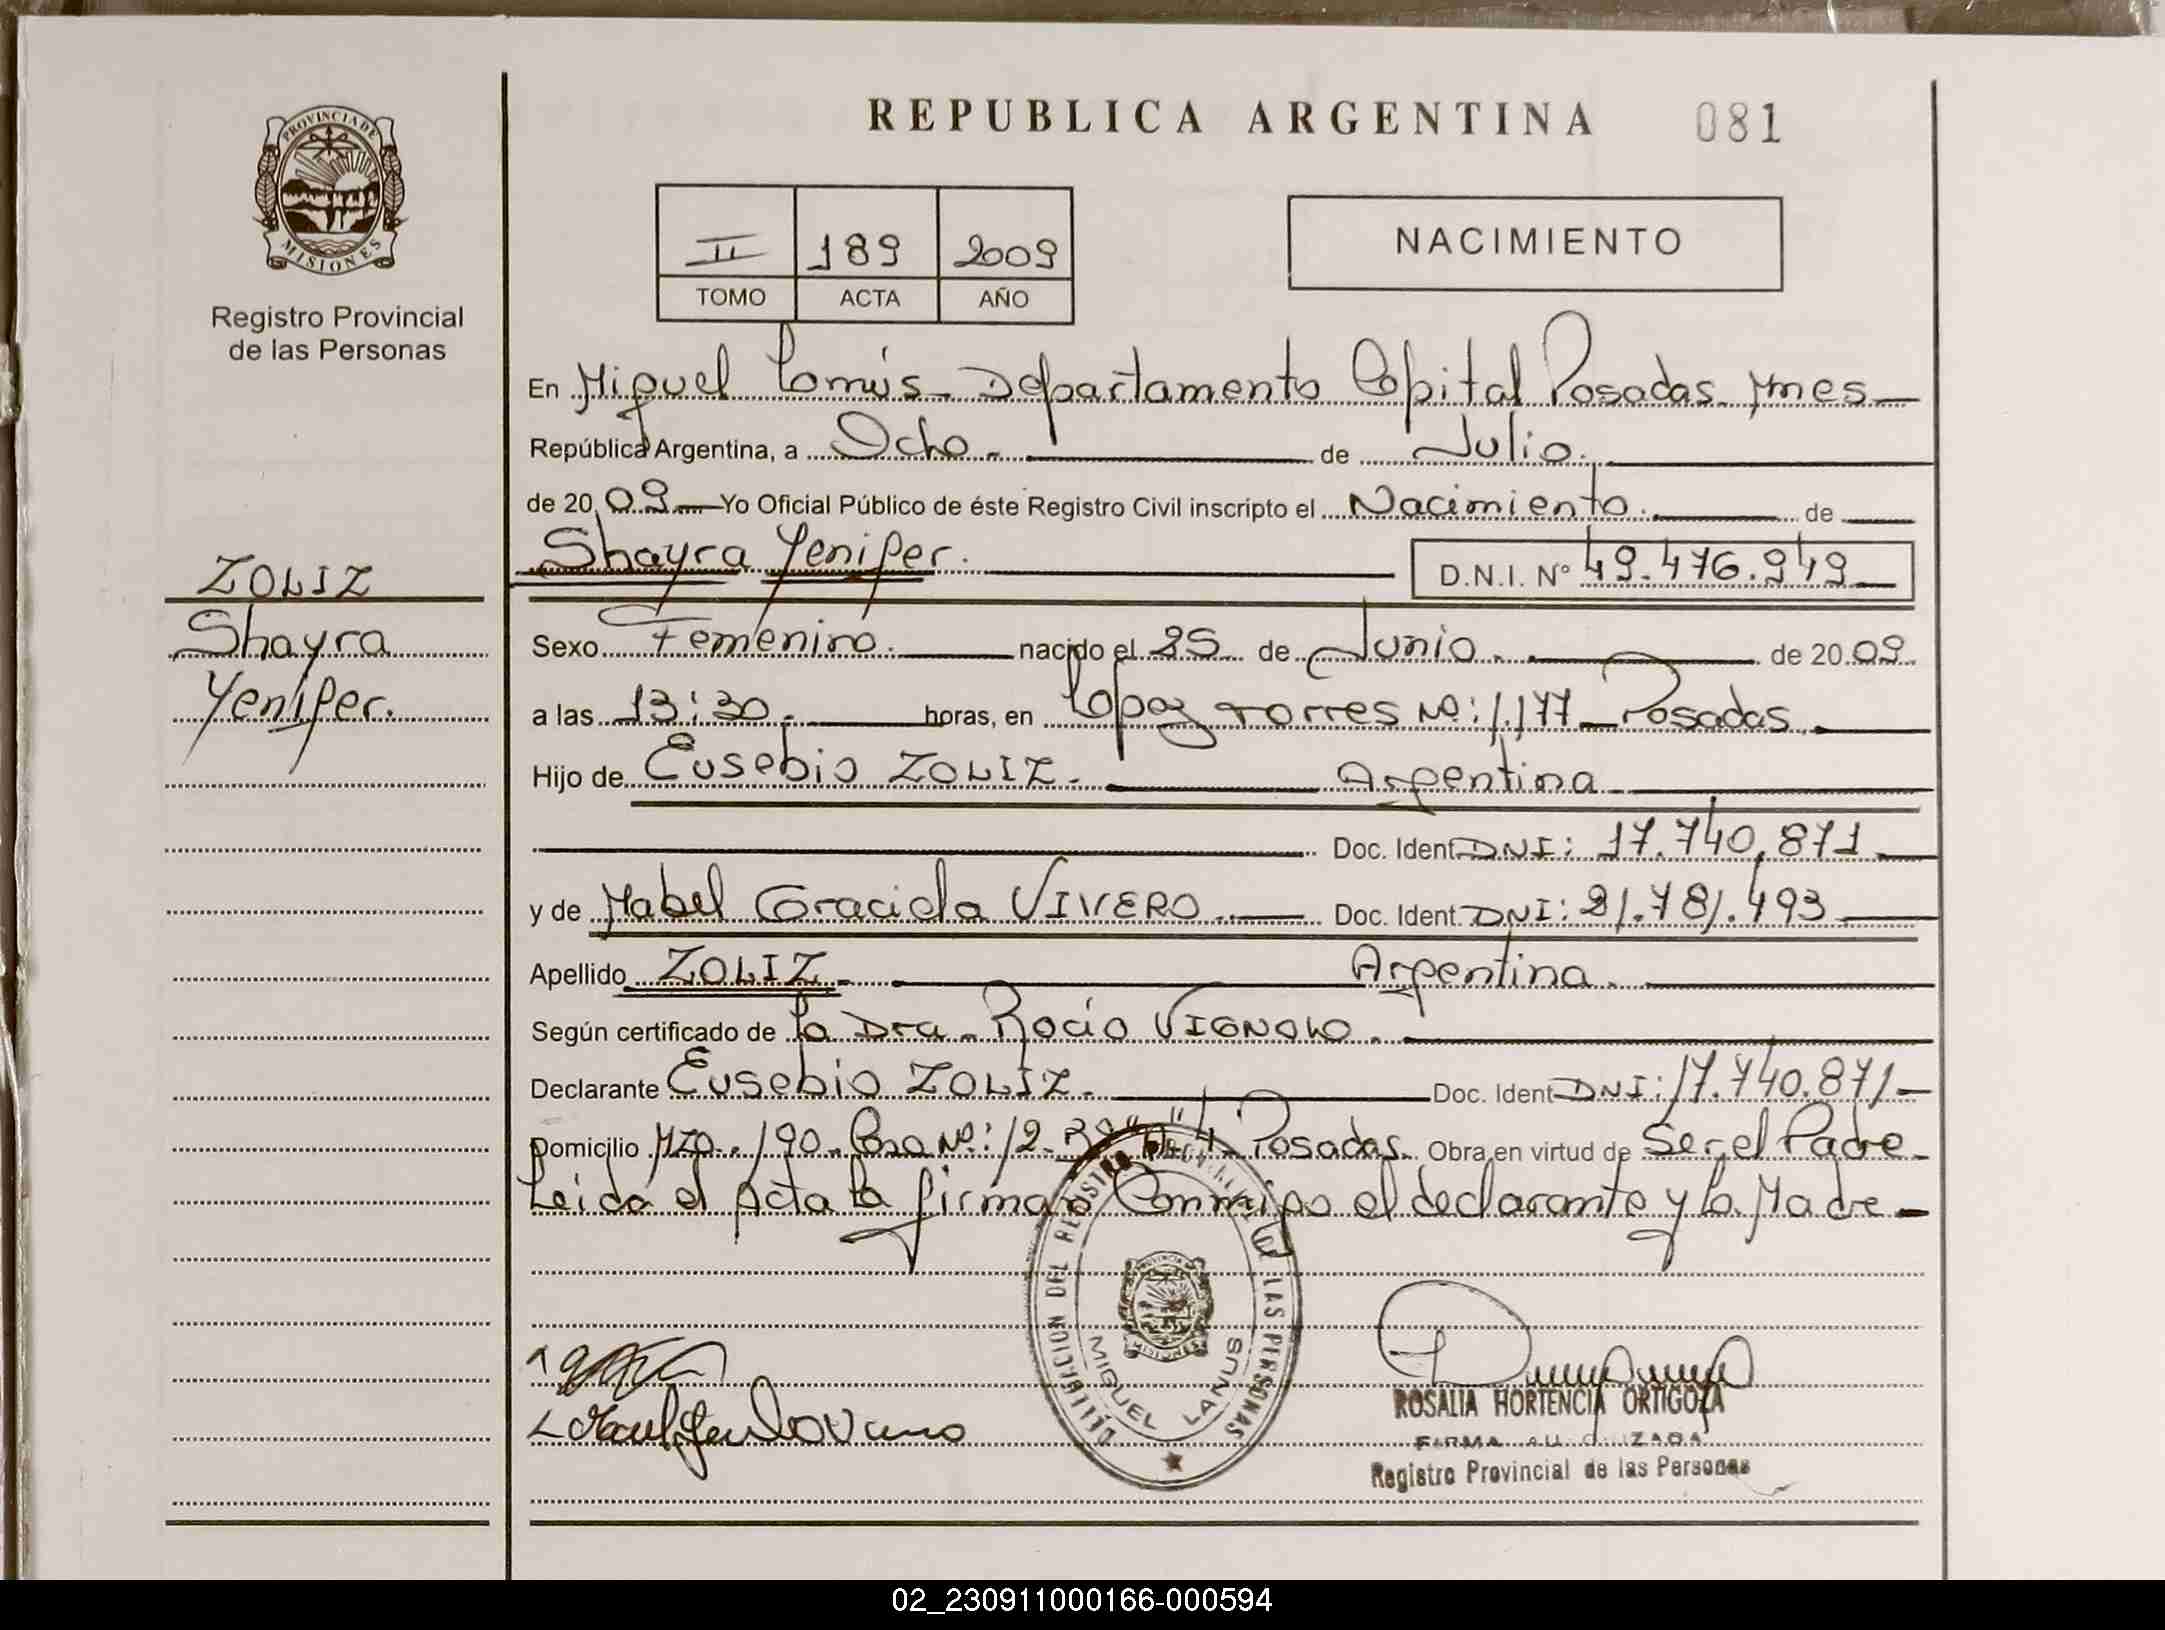 REPUBLICA ARGENTINA 081
PROVINCIA DE MISIONES
Registro Provincial
de las Personas
II 189 2009
TOMO ACTA AÑO
NACIMIENTO
En Miguel Lanús - Departamento Capital Posadas Mnes
República Argentina, a Ocho de Julio.
de 20 09 Yo Oficial Público de éste Registro Civil inscripto el Nacimiento. de
Shayra Yenifer. D.N.I. N° 49.476.949
ZOLIZ
Shayra
Yenifer.
Sexo Femenino. nacido el 25 de Junio. de 20 09
a las 13:30 horas, en Lopez Torres Nº: 1.177 Posadas.
Hijo de Eusebio ZOLIZ. Argentina
Doc. Ident DNI: 17.740.871
y de Mabel Graciela VIVERO Doc. Ident. DNI: 21.781.493
Apellido ZOLIZ. Argentina.
Según certificado de la Dra. Rocío VIGNOLO.
Declarante Eusebio ZOLIZ. Doc. Ident DNI: 17.740.871
Domicilio Mza. 190. Casa Nº: 12 Posadas. Obra en virtud de Ser el Padre
Leída el Acta la firman Conmigo el declarante y la Madre
DELEGACION DEL REGISTRO PROVINCIAL DE LAS PERSONAS
MIGUEL LANUS
ROSALIA HORTENCIA ORTIGOZA
FIRMA AUTORIZADA
Registro Provincial de las Personas
02_230911000166-000594